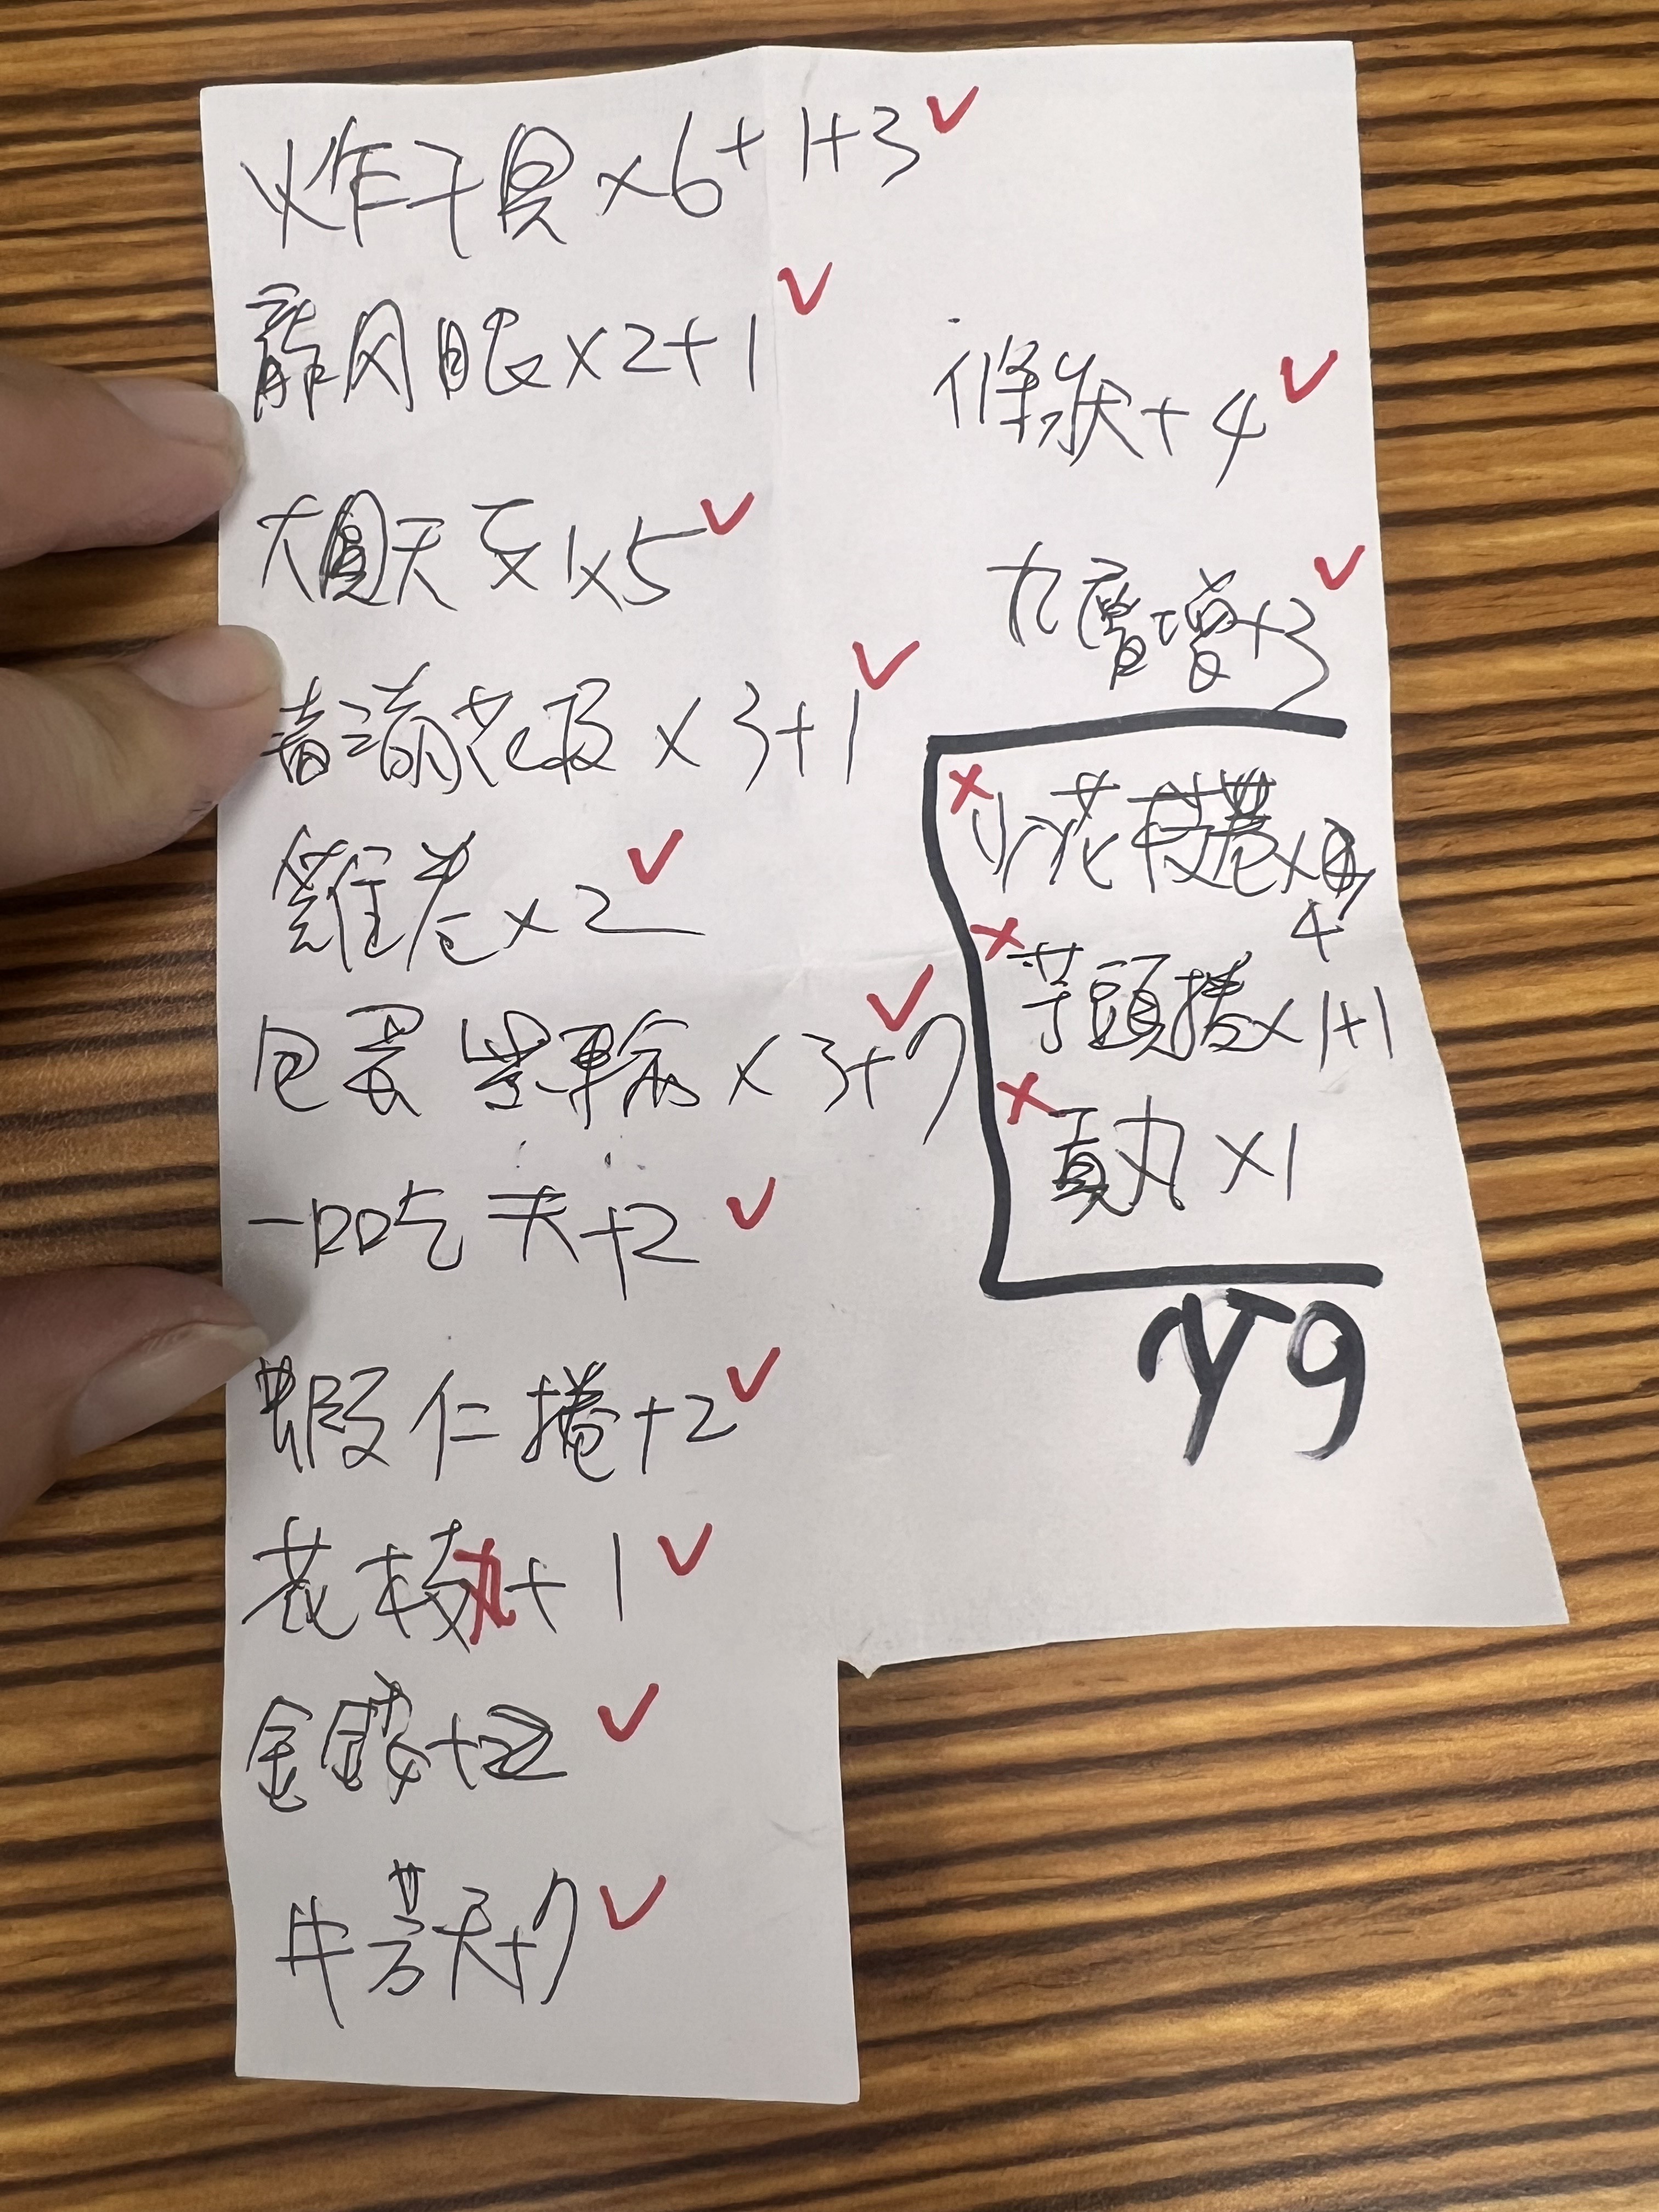 炸干貝x6+1+3
龍鳳眼x2+1
大圓天婦x5
春滿花及x3+1
雞卷x2
包蛋黑輪x3+7
一口吃天+2
蝦仁捲+2
花枝丸+1
金錢+2
牛蒡天+7
條狀+4
九層塔+3
小花枝捲x4
芋頭捲x1+1
貢丸x1